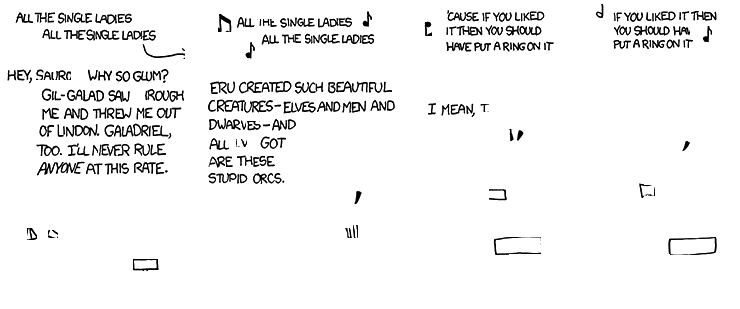 ALL THE SINGLE LADIES
ALL THE SINGLE LADIES
HEY, WHY SO GLUM?
GIL-GALAD SAW
ME AND THREW ME OUT
OF LINDON. GALADRIEL,
TOO. I'LL NEVER RULE
ANYONE AT THIS RATE.
ALL THE SINGLE LADIES
ALL THE SINGLE LADIES
ERU CREATED SUCH BEAUTIFUL
CREATURES-ELVES AND MEN AND
DWARVES-AND
ALL GOT
ARE THESE
STUPID ORCS.
'CAUSE IF YOU LIKED
IT THEN YOU SHOULD
HAVE PUT A RING ON IT
I MEAN,
IF YOU LIKED IT THEN
YOU SHOULD
PUT A RING ON IT